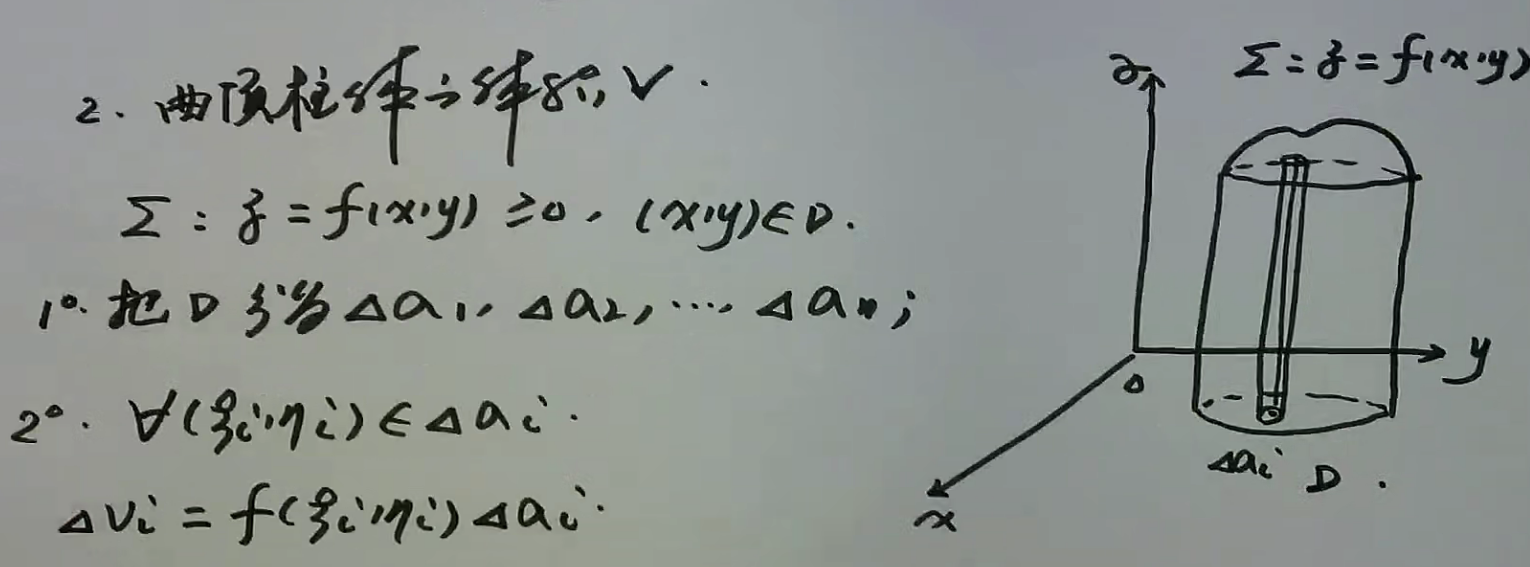 2. 曲顶柱体之体积 V.
Σ: z = f(x,y) ≥ 0, (x,y)∈D.
1°. 把 D 分为 Δa₁, Δa₂, …, Δaₙ;
2°. ∀(ξi,ηi)∈Δai.
Δvi = f(ξi,ηi)Δai.
Σ: z = f(x,y)
z
y
0
x
Δai
D.